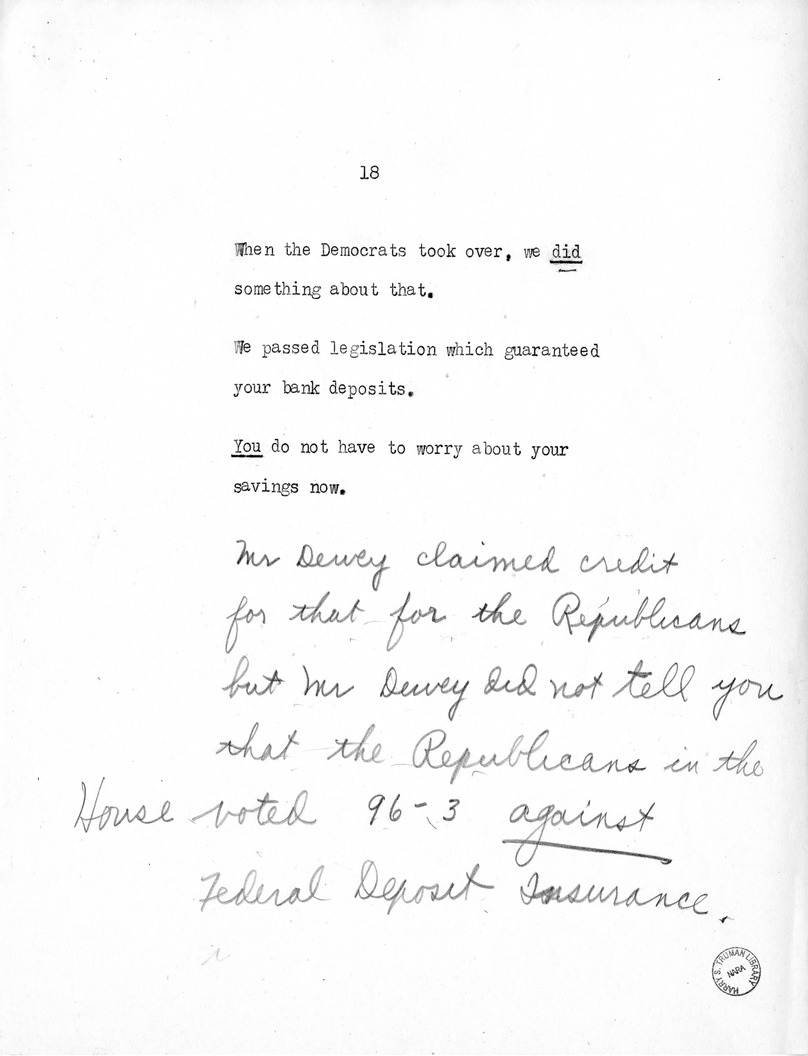 18
When the Democrats took over, we did
something about that.
We passed legislation which guaranteed
your bank deposits.
You do not have to worry about your
savings now.
Mr Dewey claimed credit
for that for the Republicans
but Mr Dewey did not tell you
that the Republicans in the
House voted 96-3 against
Federal Deposit Insurance.
HARRY S. TRUMAN LIBRARY
NARA